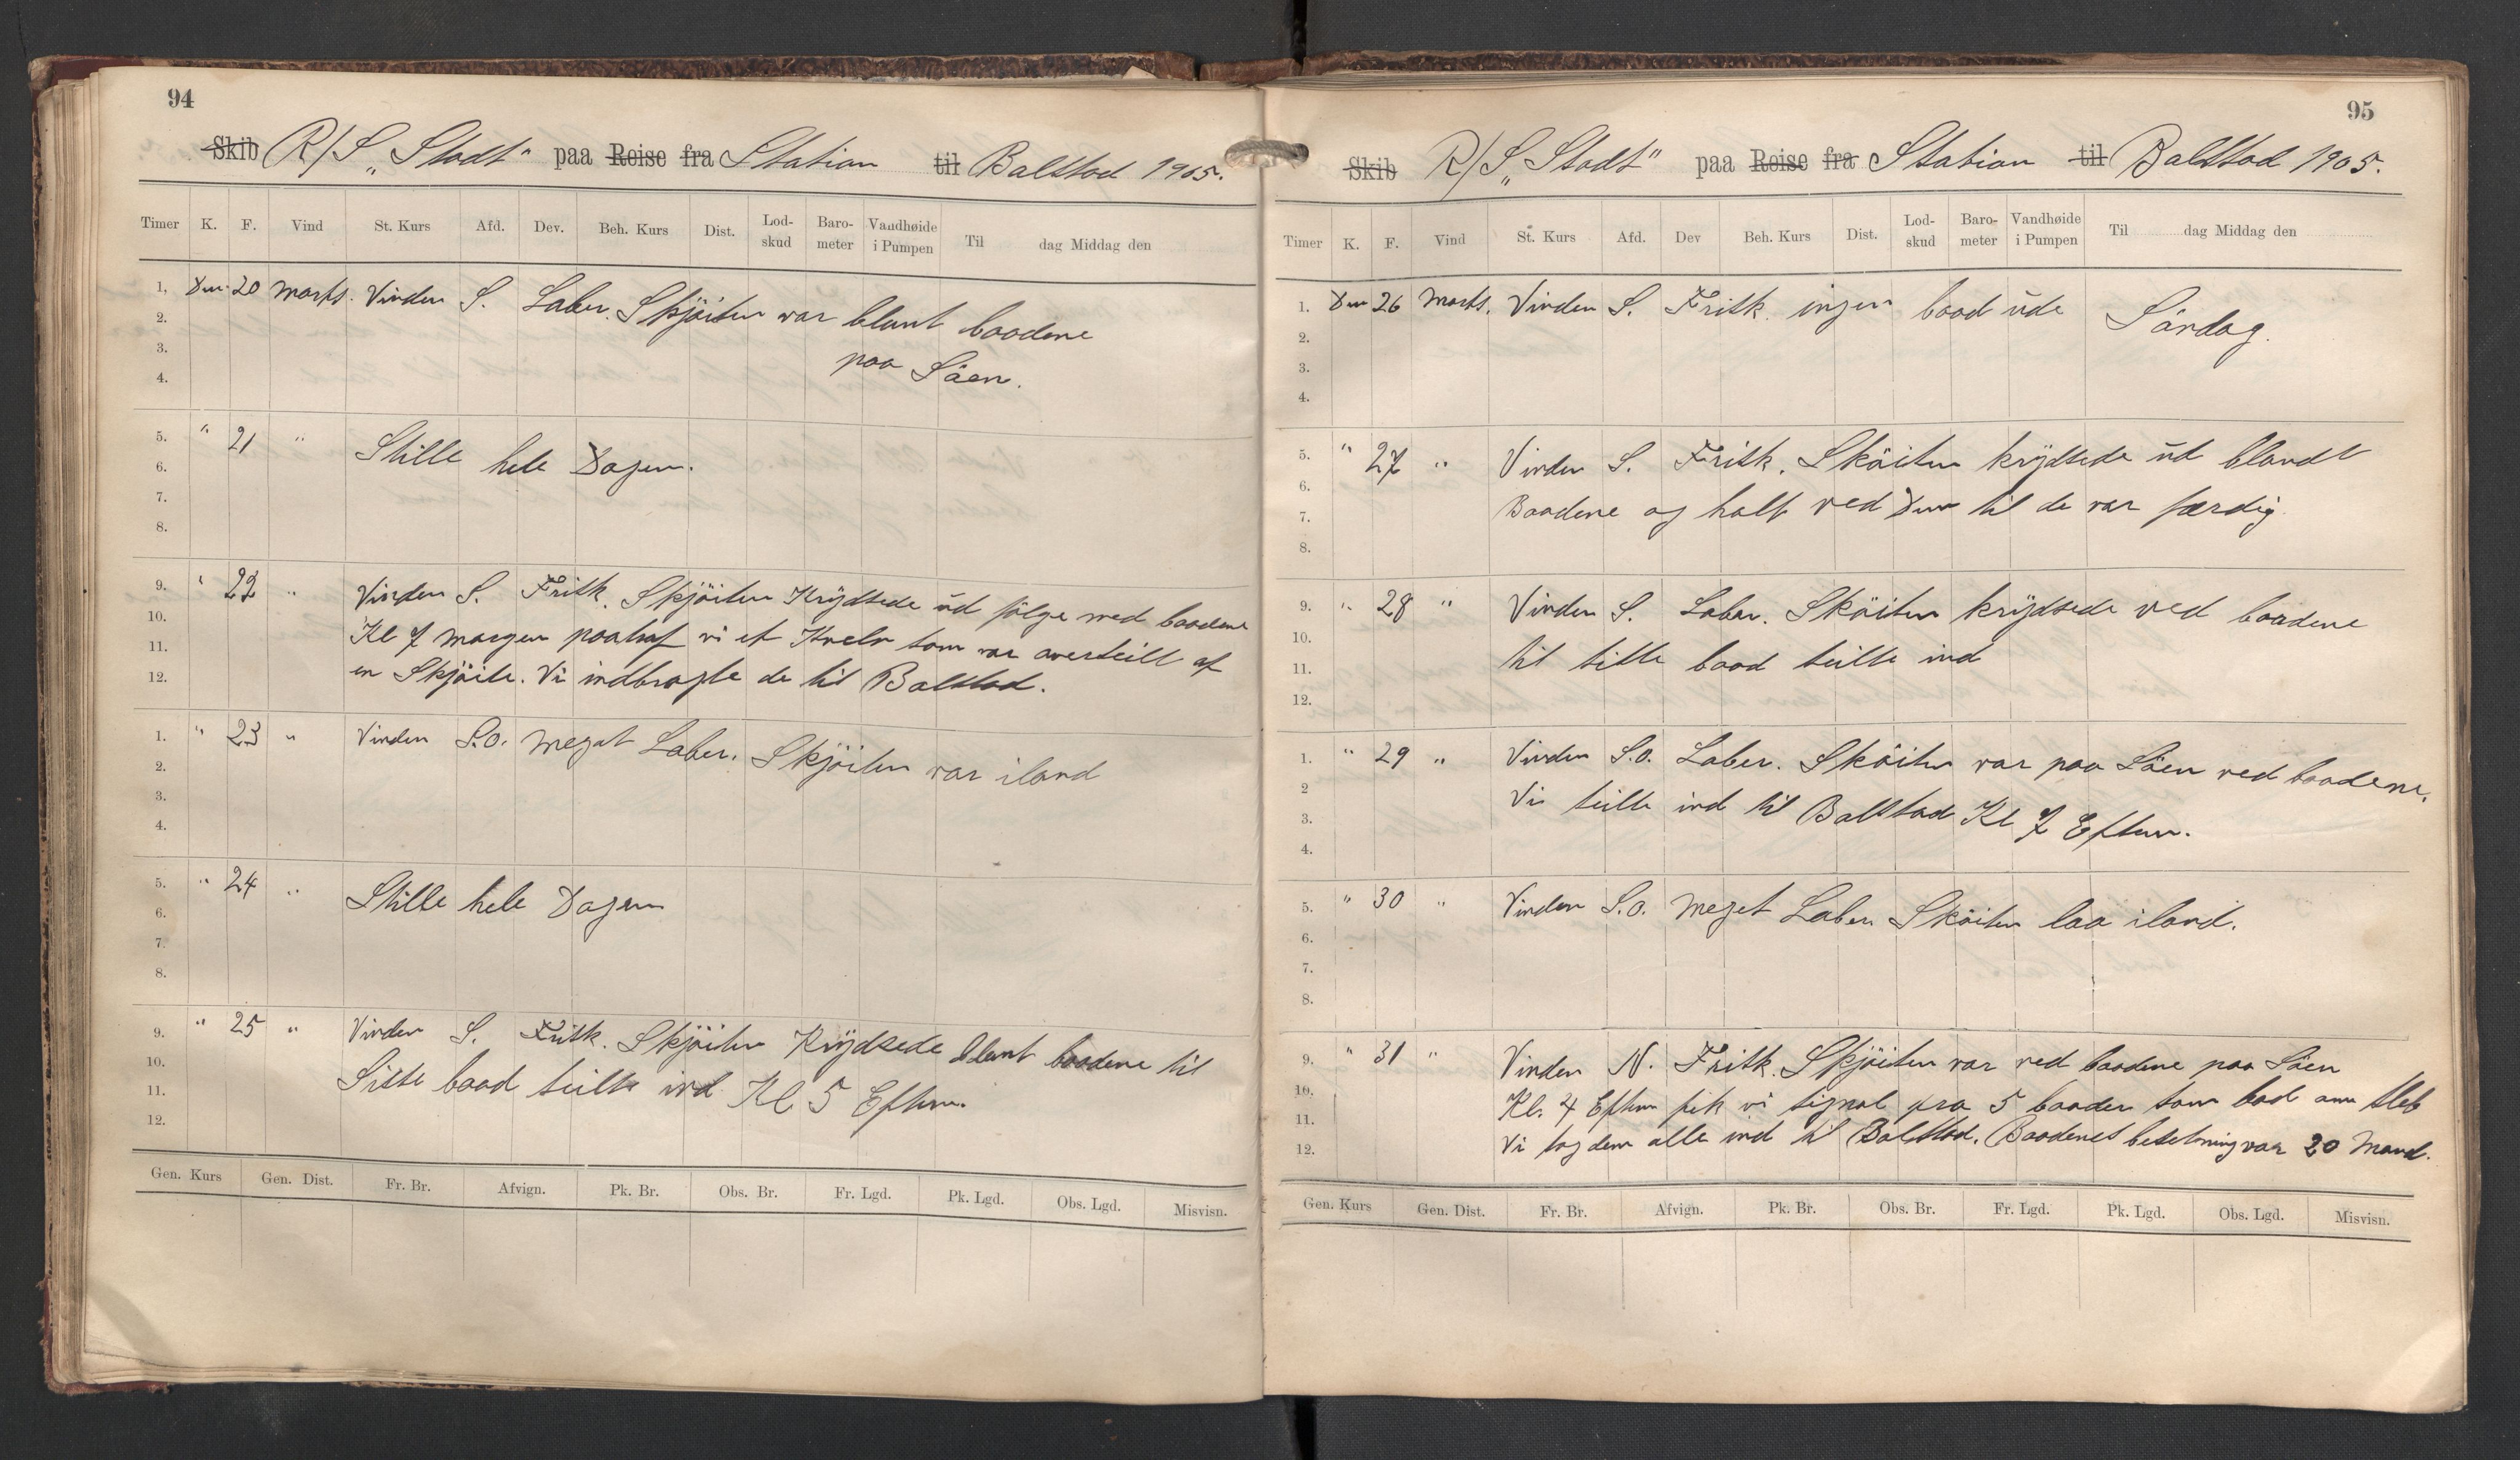 94
Skib R/S „Stadt" paa Reise fra Station til Balstad 1905.
Timer K. F. Vind St. Kurs Afd. Dev. Beh. Kurs Dist. Lod-skud Baro-meter Vandhøide i Pumpen Til dag Middag den
1, Den 20 Marts. Vinden S. Laber. Skjöiten var blant baadene
2.
3. paa Söen.
4.
5. " 21 " Stille hele Dagen.
6.
7.
8.
9. " 22 " Vinden S. Frisk. Skjöiten Krydsede ud fölge med baadene
10. Kl 7 morgen paatraf vi et Kvelv som var averseilt af
11. en Skjöite. Vi indbragte de til Balstad.
12.
1. " 23 " Vinden S.O. meget Laber. Skjöiten var iland
2.
3.
4.
5. " 24 " Stille hele Dagen
6.
7.
8.
9. " 25 " Vinden S. Frisk. Skjöiten Krydsede blant baadene til
10. Siste baad seilte ind Kl 5 Efterm.
11.
12.
Gen. Kurs Gen. Dist. Fr. Br. Afvign. Pk. Br. Obs. Br. Fr. Lgd. Pk. Lgd. Obs. Lgd. Misvisn.
95
Skib R/S „Stadt" paa Reise fra Station til Balstad 1905.
Timer K. F. Vind St. Kurs Afd. Dev Beh. Kurs Dist. Lod-skud Baro-meter Vandhøide i Pumpen Til dag Middag den
1. Den 26 Marts. Vinden S. Frisk. ingen baad ude Söndag.
2.
3.
4.
5. " 27 " Vinden S. Frisk. Sköiten krydsede ud blandt
6. Baadene og halt ved Dem til de var færdig
7.
8.
9. " 28 " Vinden S. Laber. Sköiten krydsede ved baadene
10. til siste baad seilte ind
11.
12.
1. " 29 " Vinden S.O. Laber. Sköiten var paa Söen ved baadene.
2 Vi seilte ind til Balstad Kl 7 Efterm.
3.
4.
5. " 30 " Vinden S.O. meget Laber Sköiten laa iland.
6.
7.
8.
9. " 31 " Vinden N. Frisk. Skjöiten var ved baadene paa Söen
10. Kl. 4 Efterm fik vi signal fra 5 baader som bad om sleb
11. Vi tog dem alle ind til Balstad. Baadenes besetning var 20 Mand.
12.
Gen. Kurs Gen. Dist. Fr. Br. Afvign. Pk. Br. Obs. Br. Fr. Lgd. Pk. Lgd. Obs. Lgd. Misvisn.